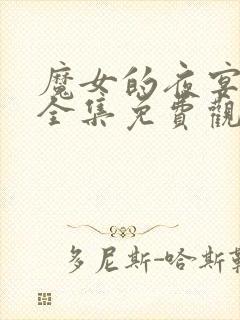 魔女的夜宴
全集免費觀
多尼斯-哈斯